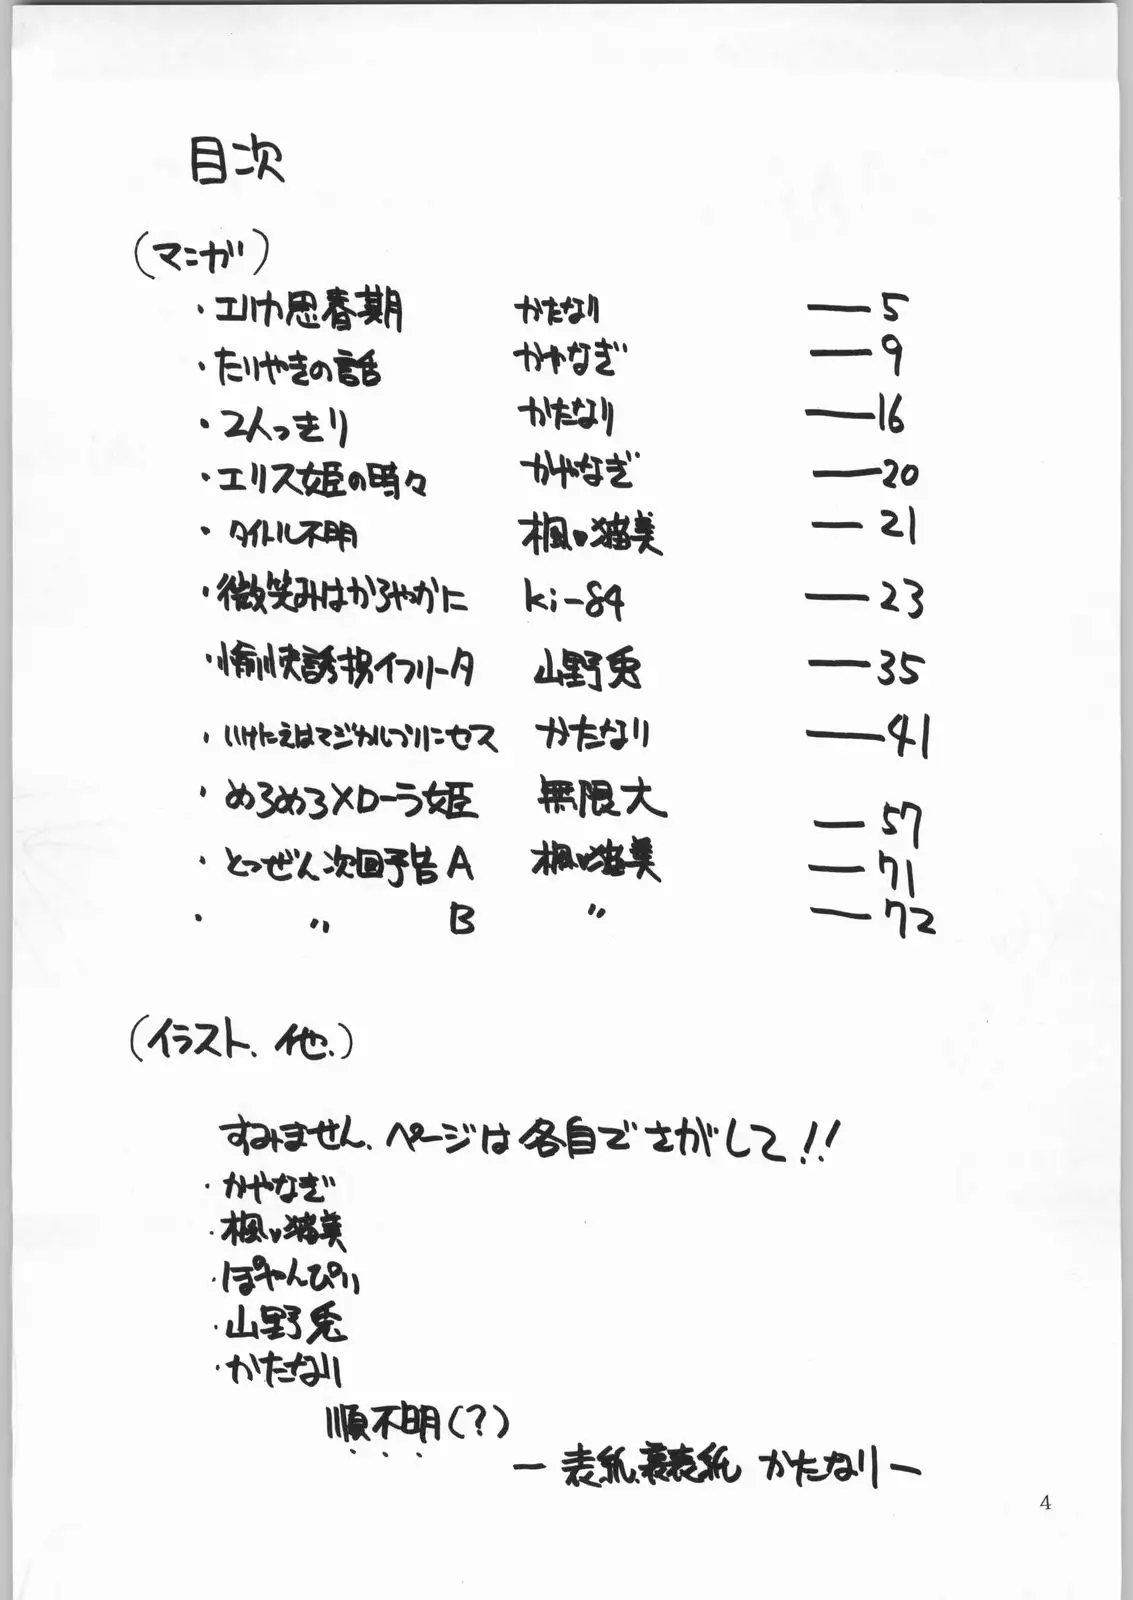 目次
(マンガ)
・エリカ思春期 かたなり ― 5
・たりやきの話 かやなぎ ― 9
・2人っきり かたなり ― 16
・エリス姫の時々 かやなぎ ― 20
・タイトル不明 楓い猫美 ― 21
・微笑みはかろやかに ki-84 ― 23
・愉快誘拐イフリータ 山野兎 ― 35
・いけにえはマジカルプリンセス かたなり ― 41
・めろめろ×ローラ姫 無限大 ― 57
・とつぜん次回予告A 楓い猫美 ― 71
・ 〃 B 〃 ― 72
(イラスト、他、)
すみません、ページは各自でさがして!!
・かやなぎ
・楓い猫美
・ぽやんぴい
・山野兎
・かたなり
順不明(?)
― 表紙、裏表紙 かたなり ―
4